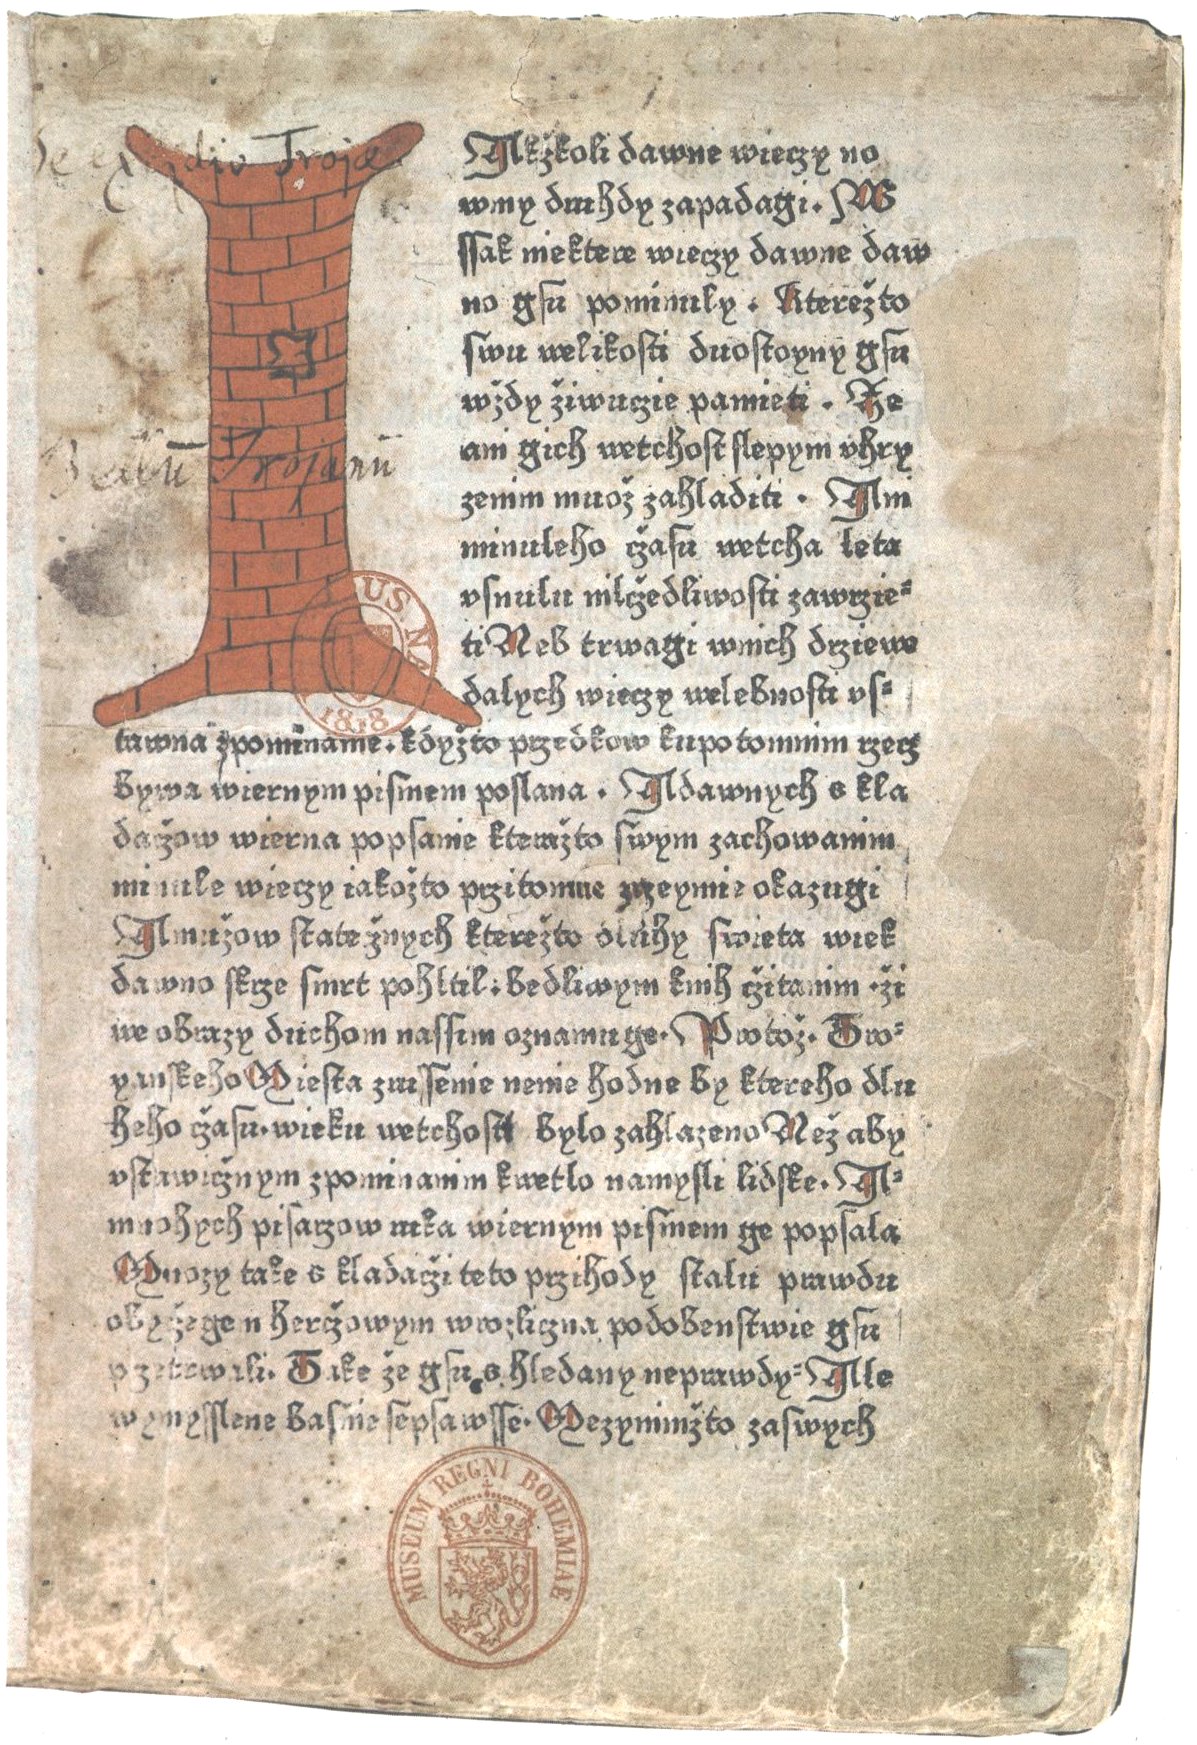 De excidio Trojæ
Bellū Trojanū
I
Akžkoli dawne wieczy no
wmy druhdy zapadagi. W
ssak niektere wieczy dawne daw
no gsu pominuly. Kterežto
swu welikosti duostoyny gsu
wždy žiwuczie pamieti. Že
ani gich wetchost slepym vhry
zenim muož zahladiti. Ani
minuleho čzasu wetcha leta
vsnulu mlčzedliwosti zawrzie⸗
ti Neb trwagi wnich drziewe
dalych wieczy welebnosti vs⸗
tawna zpominanie. kdyžto przedkow kupotomnim rzecz
bywa wiernym pismem poslana. A dawnych s kla
dačzow wierna popsanie kteražto swym zachowanim
minule wieczy iakožto przitomne zrzeymie okazugi
A mužow statečžnych kterežto dluhy swieta wiek
dawno skrze smrt pohltil: bedliwym knih čzitanim. ži
we obrazy duchom nassim oznamuge. Protož. Tro⸗
yanskeho Miesta zrussenie nenie hodne by ktereho dlu
heho čzasu. wieku wetchosti bylo zahlazeno Než aby
vstawičznym zpominanim kwetlo namysli lidske. A⸗
mnohych pisarzow ruka wiernym pismem ge popsala
Mnozy take s kladačzi teto przihody stalu prawdu
obyčžegem herčzowym wrozličzna podobenstwie gsu
przetrwali. Take že gsu s hledany neprawdy⸗ Ale
wymysslene basnie sepsawsse. Mezynimžto zaswych
MUSEUM REGNI BOHEMIAE
1818